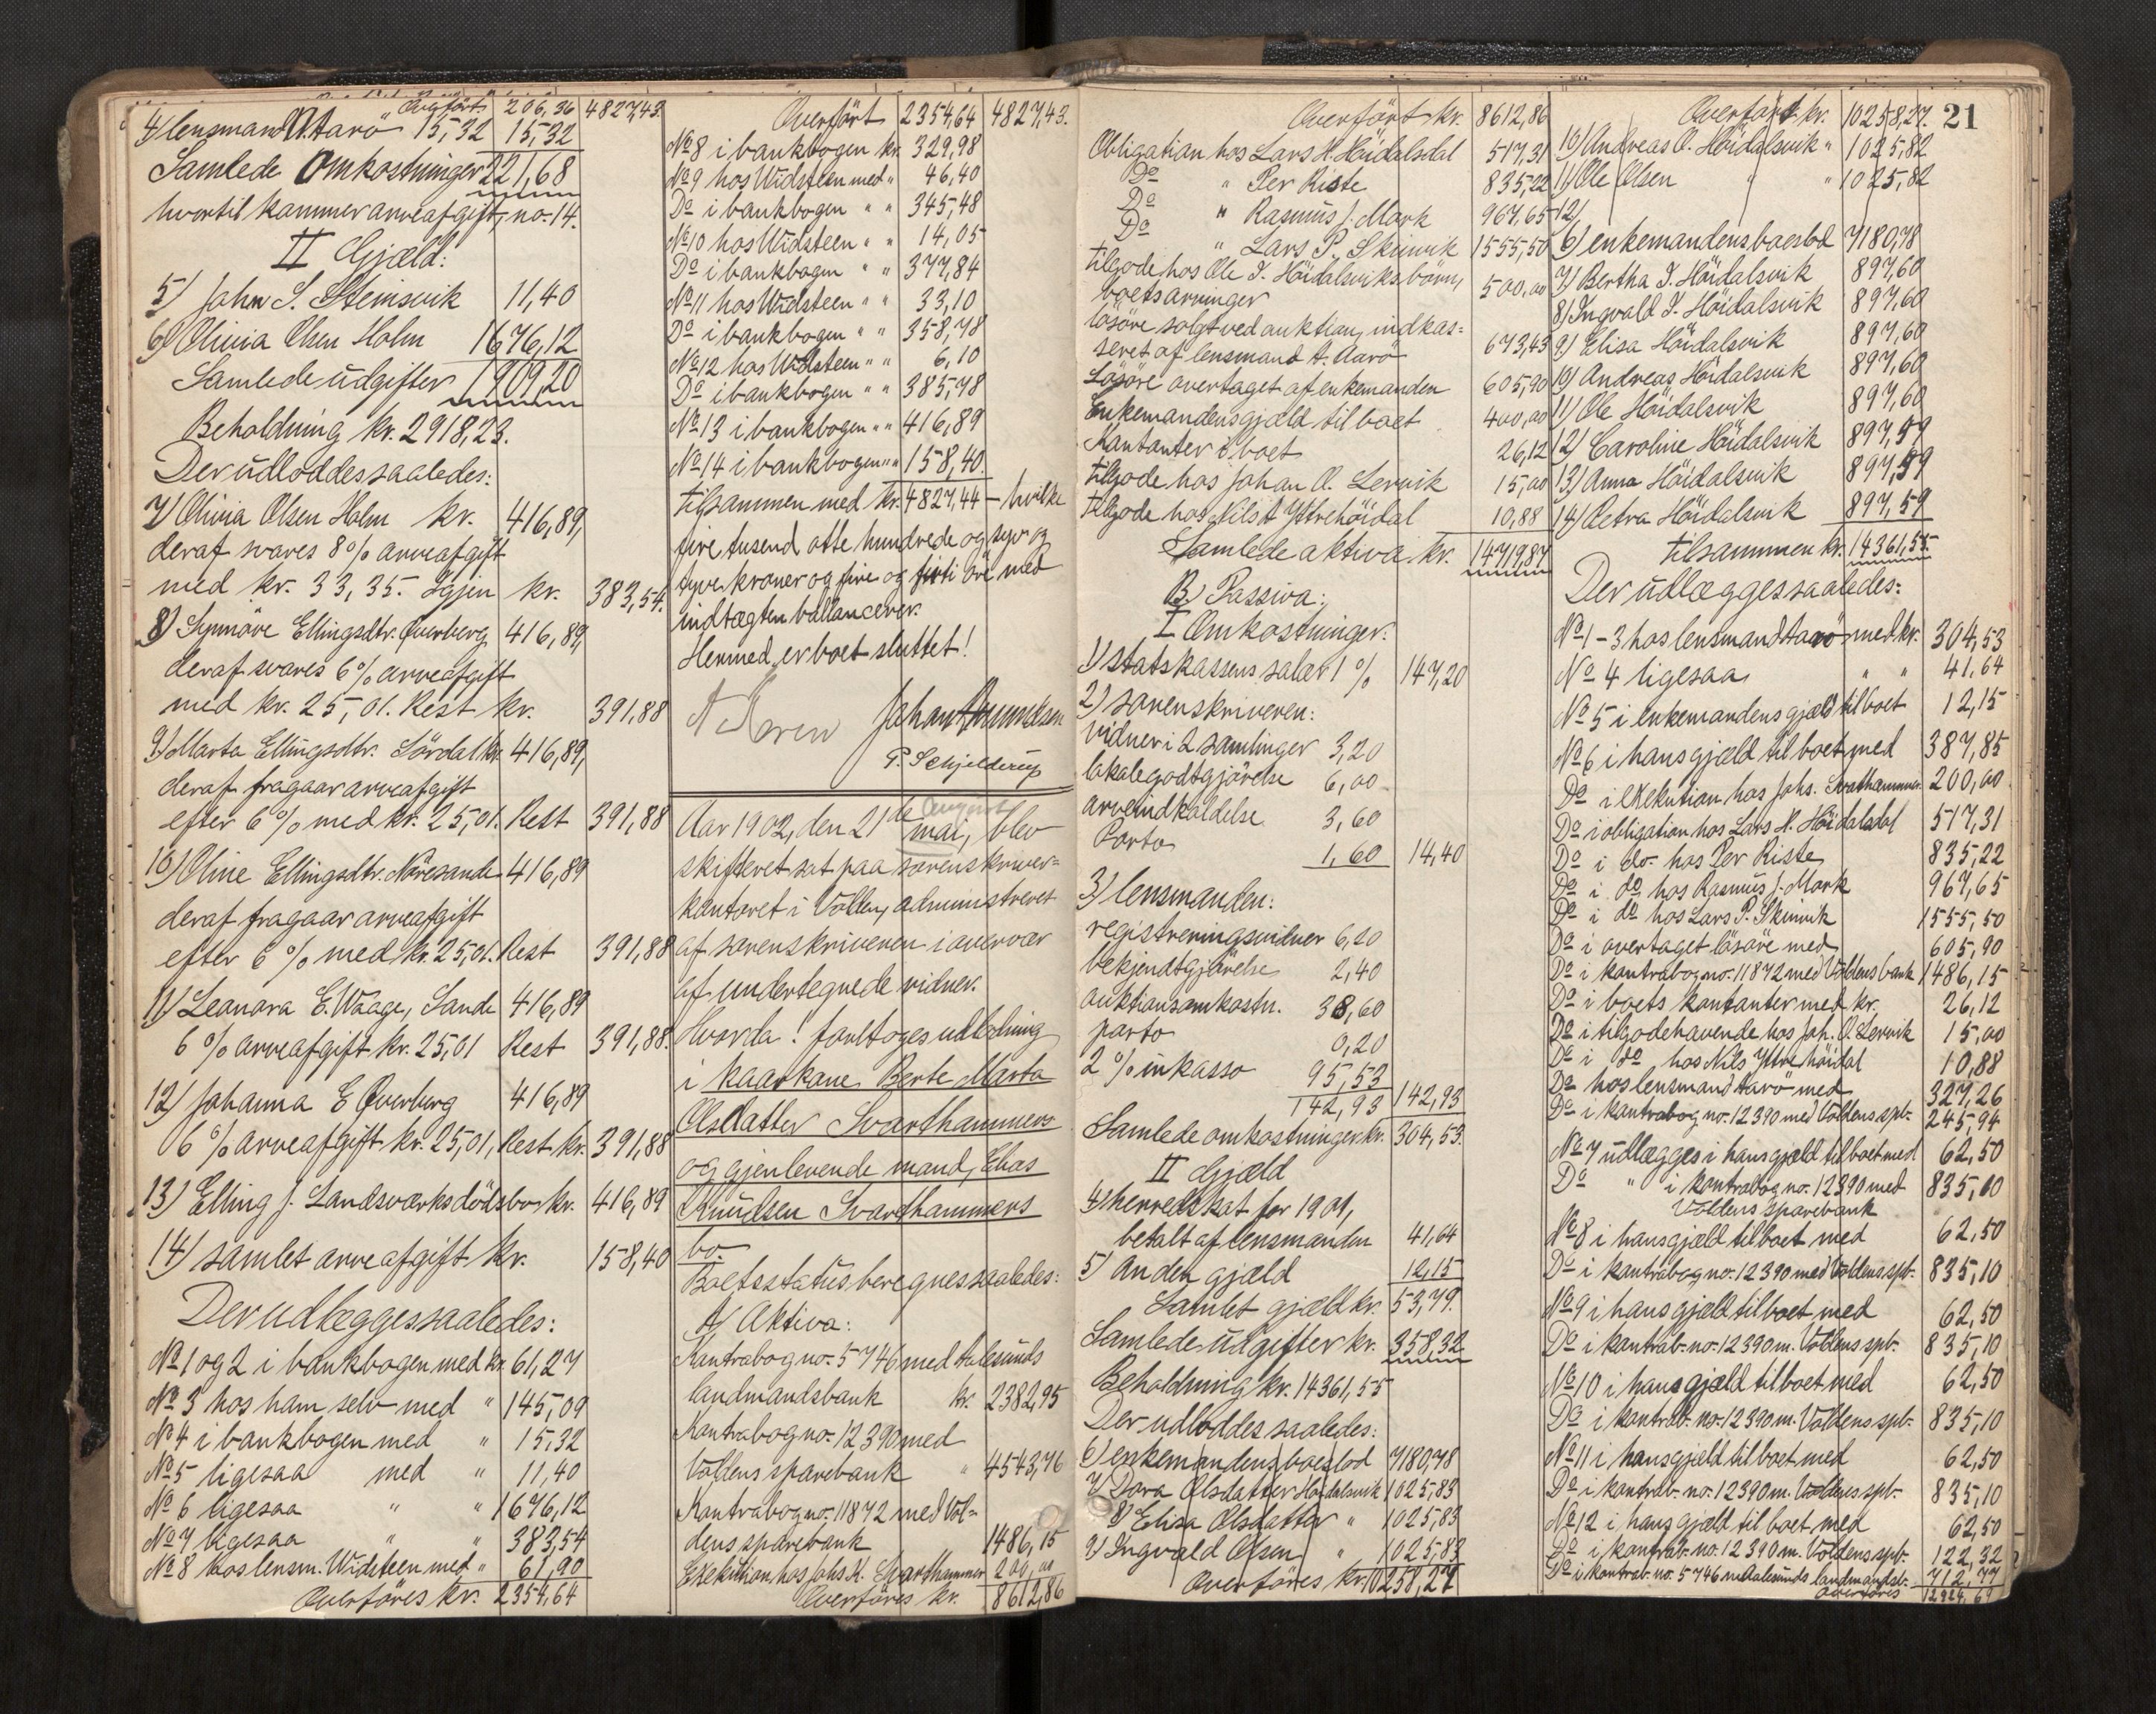 Overført 206,36 4827,43.
4) lensmand A. Aarö 15,32 15,32
Samlede Omkostninger 221,68
hvortil kommer arveafgift, no. 14.
II Gjæld:
5) Johan S. Steinsvik 11,40
6) Olivia Olsen Holm 1676,12
Samlede udgifter 1909,20
Beholdning kr. 2918,23.
Der udloddes saaledes:
7) Olivia Olsen Holm kr. 416,89,
deraf svares 8% arveafgift
med kr. 33,35. Igjen kr. 383,54.
8) Synnöve Ellingsdtr. Överberg 416,89,
deraf svares 6% arveafgift
med kr. 25,01. Rest kr. 391,88
9) Marta Ellingsdtr. Lördal kr. 416,89,
deraf fragaar arveafgift
efter 6% med kr. 25,01. Rest 391,88
10) Oline Ellingsdtr. Nöresande 416,89
deraf fragaar arveafgift
efter 6% med kr. 25,01. Rest 391,88
11) Leanara E. Waage, Sande 416,89
6% arveafgift kr. 25,01 Rest 391,88.
12) Johanna E Överberg 416,89
6% arveafgift kr. 25,01, Rest kr. 391,88
13) Elling J. Landsværks dödsbo kr. 416,89
14) samlet arveafgift kr. 158,40
Der udlægges saaledes:
No 1 og 2 i bankbogen med kr. 61,27
No 3 hos ham selv med " 145,09
No 4 i bankbogen med " 15,32
No 5 ligesaa med " 11,40
No 6 ligesaa " " 1676,12
No 7 ligesaa " " 383,54
No 8 hos lensm. Widsteen med " 61,90
Overföres kr. 2354,64
Overfört 2354,64 4827,43.
No 8 i bankbogen kr. 329,98
No 9 hos Widsteen med " 46,40
Do i bankbogen " " 345,48
No 10 hos Widsteen " " 14,05
Do i bankbogen " " 377,84
No 11 hos Widsteen " " 33,10
Do i bankbogen " " 358,78
No 12 hos Widsteen " " 6,10
Do i bankbogen " " 385,78
No 13 i bankbogen " " 416,89
No 14 i bankbogen " " 158,40.
tilsammen med kr. 4827,44 – hvilke
fire tusend otte hundrede og syv og
tyve kroner og fire og firti öre med
indtægten ballancerer.
Hermed er boet sluttet!
Johan Amundsen
P. Schjelderup
Aar 1902, den 21de mai, august blev
skifteret sat paa sorenskriver=
kontoret i Volden, administreret
af sorenskriveren i overvær
af undertegnede vidner.
Hvorda! foretoges udlodning
i kaarkone Berte Marta
Olsdatter Svarthammers
og gjenlevende mand, Elias
Knudsen Svarthammers
bo.
Boets status beregnes saaledes:
A) Aktiva:
Kontrabog no. 5746 med Aalesunds
landmandsbank kr. 2382,95
Kontrabog no. 12390 med
Voldens sparebank " 4543,76
Kontrabog no. 11872 med Vol=
dens sparebank 1486,15
Exekution hos Johs K. Svarthammer 200,00
Overföres kr. 8612,86
Overfört kr. 8612,86
Obligation hos Lars H. Höidalsdal 517,31
Do " Per Riste 835,22
Do " Rasmus J. Mork 967,65
Do " Lars P. Skinvik 1555,50
tilgode hos Ole I. Höidalsviks börn,
boets arvinger 500,00
lösöre solgt ved auktion, indkas=
seret af lensmand A. Aarö 673,43
Lösöre overtaget af enkemanden 605,90
Enkemandens gjæld til boet 400,00
Kontanter i boet 26,12
tilgode hos Johan O. Lervik 15,00
tilgode hos Nils A Yttrehöidal 10,88
Samlede aktiva kr. 14719,87
B.) Passiva:
I Omkostninger:
1) statskassens salær 1% 147,20
2) sorenskriveren:
vidner i 2 samlinger 3,20
lokalegodtgjörelse 6,00
arveindkaldelse 3,60
Porto 1,60 14,40
3) lensmanden:
registreringsvidner 6,20
bekjendtgjörelse 2,40
auktionsomkostn. 38,60
porto 0,20
2% inkasso 95,53
142,93 142,93
Samlede omkostninger kr. 304,53.
II Gjæld
4) herredsskat for 1901,
betalt af lensmanden 41,64
5) Anden gjæld 12,15
Samlet gjæld kr. 53,79.
Samlede udgifter kr. 358,32
Beholdning kr. 14361,55
Der udloddes saaledes:
6) enkemandens boeslod 7180,78
7) Dora Olsdatter Höidalsvik 1025,83
8) Elisa Olsdatter " 1025,83
9) Ingvald Olsen " 1025,83
Overföres kr. 10258,27
21
Overfört kr. 10258,27.
10) Andreas O. Höidalsvik " 1025,82
11) Ole Olsen " " 1025,82
12)
6) enkemandens boeslod 7180,78
7) Bertha I. Höidalsvik 897,60
8) Ingvald I. Höidalsvik 897,60
9) Elisa Höidalsvik 897,60
10) Andreas Höidalsvik 897,60
11) Ole Höidalsvik 897,60
12) Caroline Höidalsvik 897,59
13) Anna Höidalsvik 897,59
14) Petra Höidalsvik 897,59
tilsammen kr. 14361,55.
Der udlægges saaledes:
No 1–3 hos lensmand Aarö med kr. 304,53
No 4 ligesaa " " 41,64
No 5 i enkemandens gjæld til boet 12,15
No 6 i hans gjæld til boet med 387,85
Do i exekution hos Johs. Svarthammer 200,00
Do i obligation hos Lars H. Höidalsdal 517,31
Do i do. hos Per Riste 835,22
Do i do hos Rasmus J. Mork 967,65
Do i do hos Lars P. Skinvik 1555,50
Do i overtaget lösöre med 605,90
Do i kontrabog no. 11872 med Voldens bank 1486,15
Do i boets kontanter med kr. 26,12
Do i tilgodehavende hos Joh. O. Lervik 15,00
Do i do hos Nils Yttrehöidal 10,88
Do hos lensmand Aarö med 327,26
Do i kontrabog no. 12390 med Voldens spb. 245,94
No 7 udlægges i hans gjæld til boet med 62,50
Do " i kontrabog no. 12390 med
Voldens sparebank 835,10
No 8 i hans gjæld til boet med 62,50
Do i kontrabog no. 12390 med Voldens spb. 835,10
No 9 i hans gjæld til boet med 62,50
Do i kontrab. no. 12390 m. Voldens spb. 835,10
No 10 i hans gjæld til boet med 62,50
Do i kontrab. no. 12390 m. Voldens spb. 835,10
No 11 i hans gjæld til boet med 62,50
Do i kontrab. no. 12390 m. Voldens spb. 835,10
No 12 i hans gjæld til boet med 62,50
Do i kontrab. no. 12390 m. Voldens spb. 122,32
Do i kontrab. no. 5746 m. Aalesunds landmandsb. 712,77
Overföres